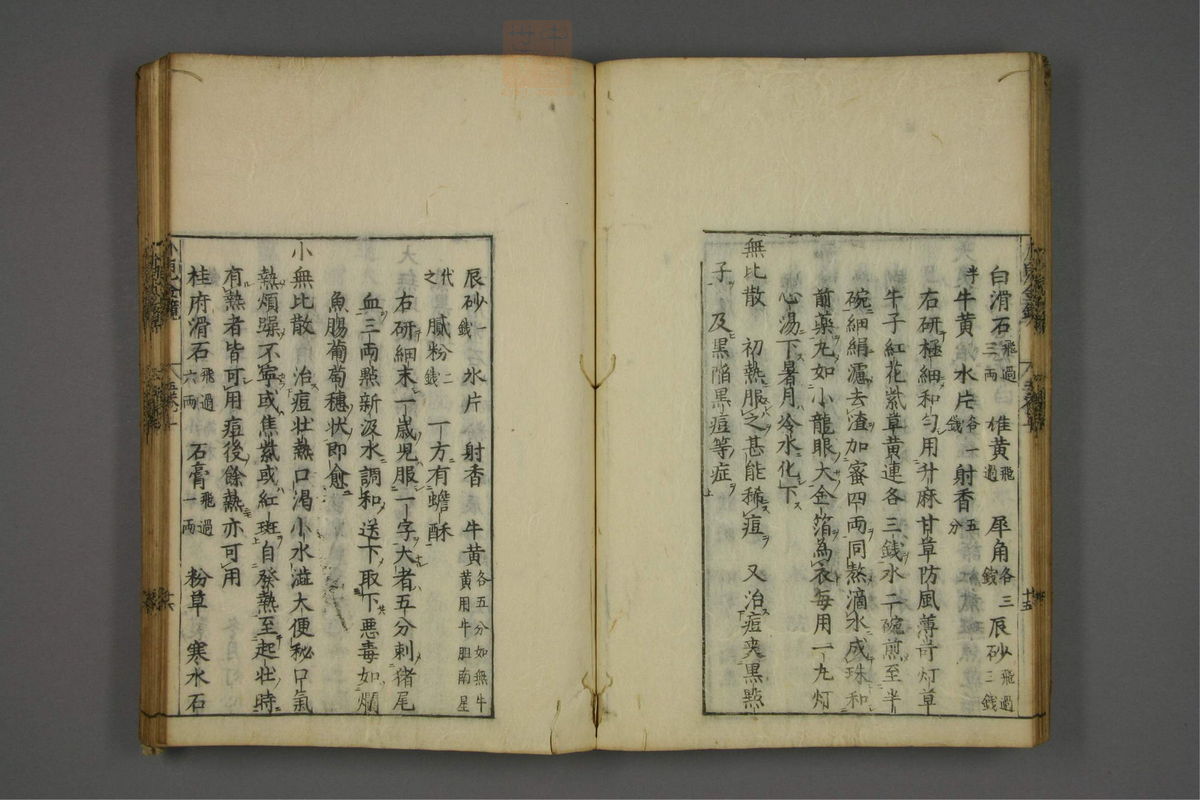 白滑石飛過三両 惟黄飛過 犀角各三銭辰砂飛過三銭
半牛黄氷片各一銭射香五分
右研極細和匀用升麻甘草防風薄荷灯草
牛子紅花紫草黄連各三銭水二碗煎至半
碗細絹濾去渣加蜜四両同熬滴水成珠和
前薬丸如小龍眼大金箔為衣毎用一丸灯
心湯下暑月冷水化下
無比散 初熱服之甚能稀痘 又治痘夾黒點
子及黒陥黒痘等症
辰砂一銭氷片 射香 牛黄各五分如無牛黄用牛胆南星
代之 膩粉二銭 一方有蟾酥
右研細末一歳児服一字大者五分刺猪尾
血三両點新汲水調和送下取下悪毒如爛
魚腸葡萄穂状即愈
小無比散 治痘壮熱口渇小水澁大便秘口気
熱煩躁不寧或焦紫或紅斑自發熱至起壮時
有熱者皆可用痘後餘熱亦可用
桂府滑石飛過六両 石膏飛過一両 粉草 寒水石